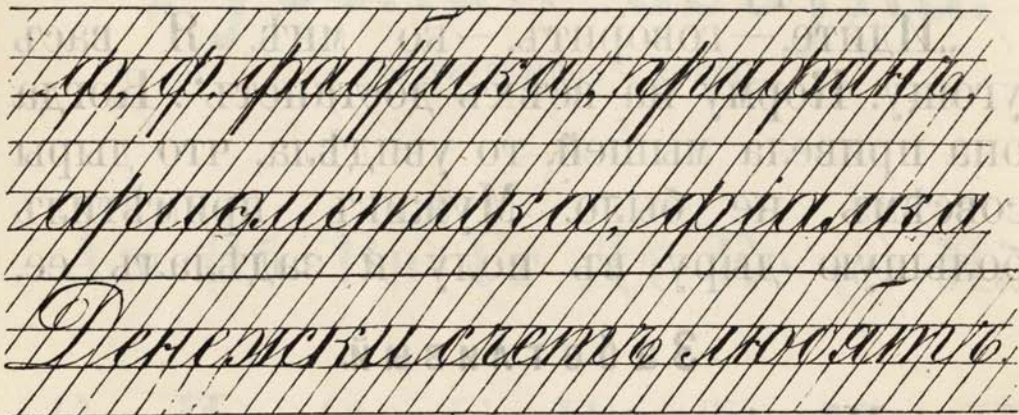 ф, ф, фабрика, графинъ,
ариѳметика, фіалка
Денежки счетъ любятъ.